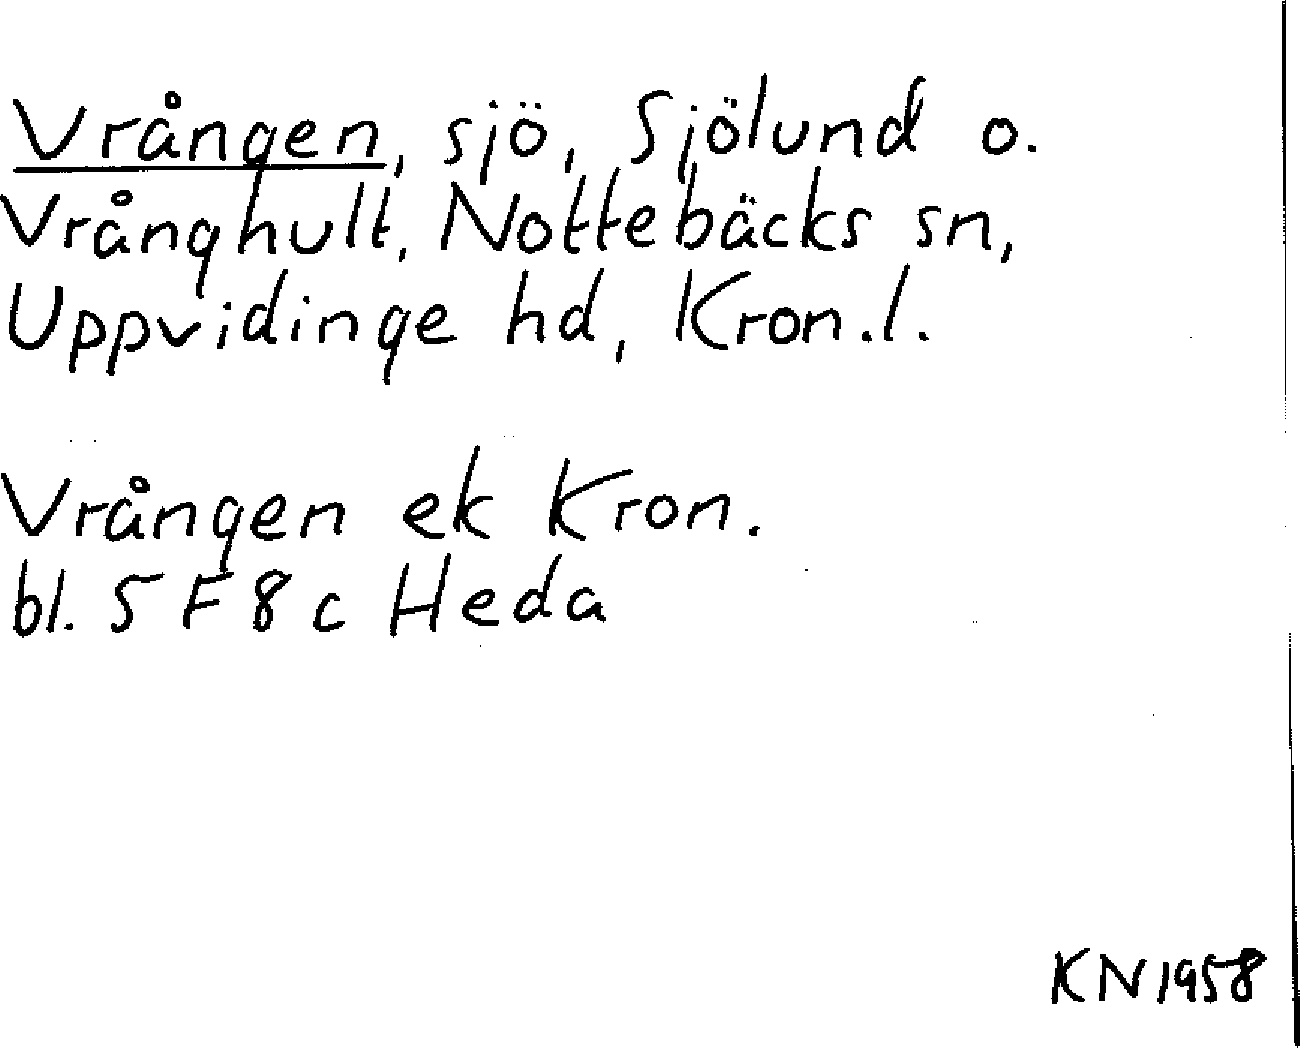 Vrången, sjö, Sjölund o.
Vrånghult, Nottebäcks sn,
Uppvidinge hd, Kron.l.
Vrången ek Kron.
bl. 5 F 8 c Heda
KN 1958